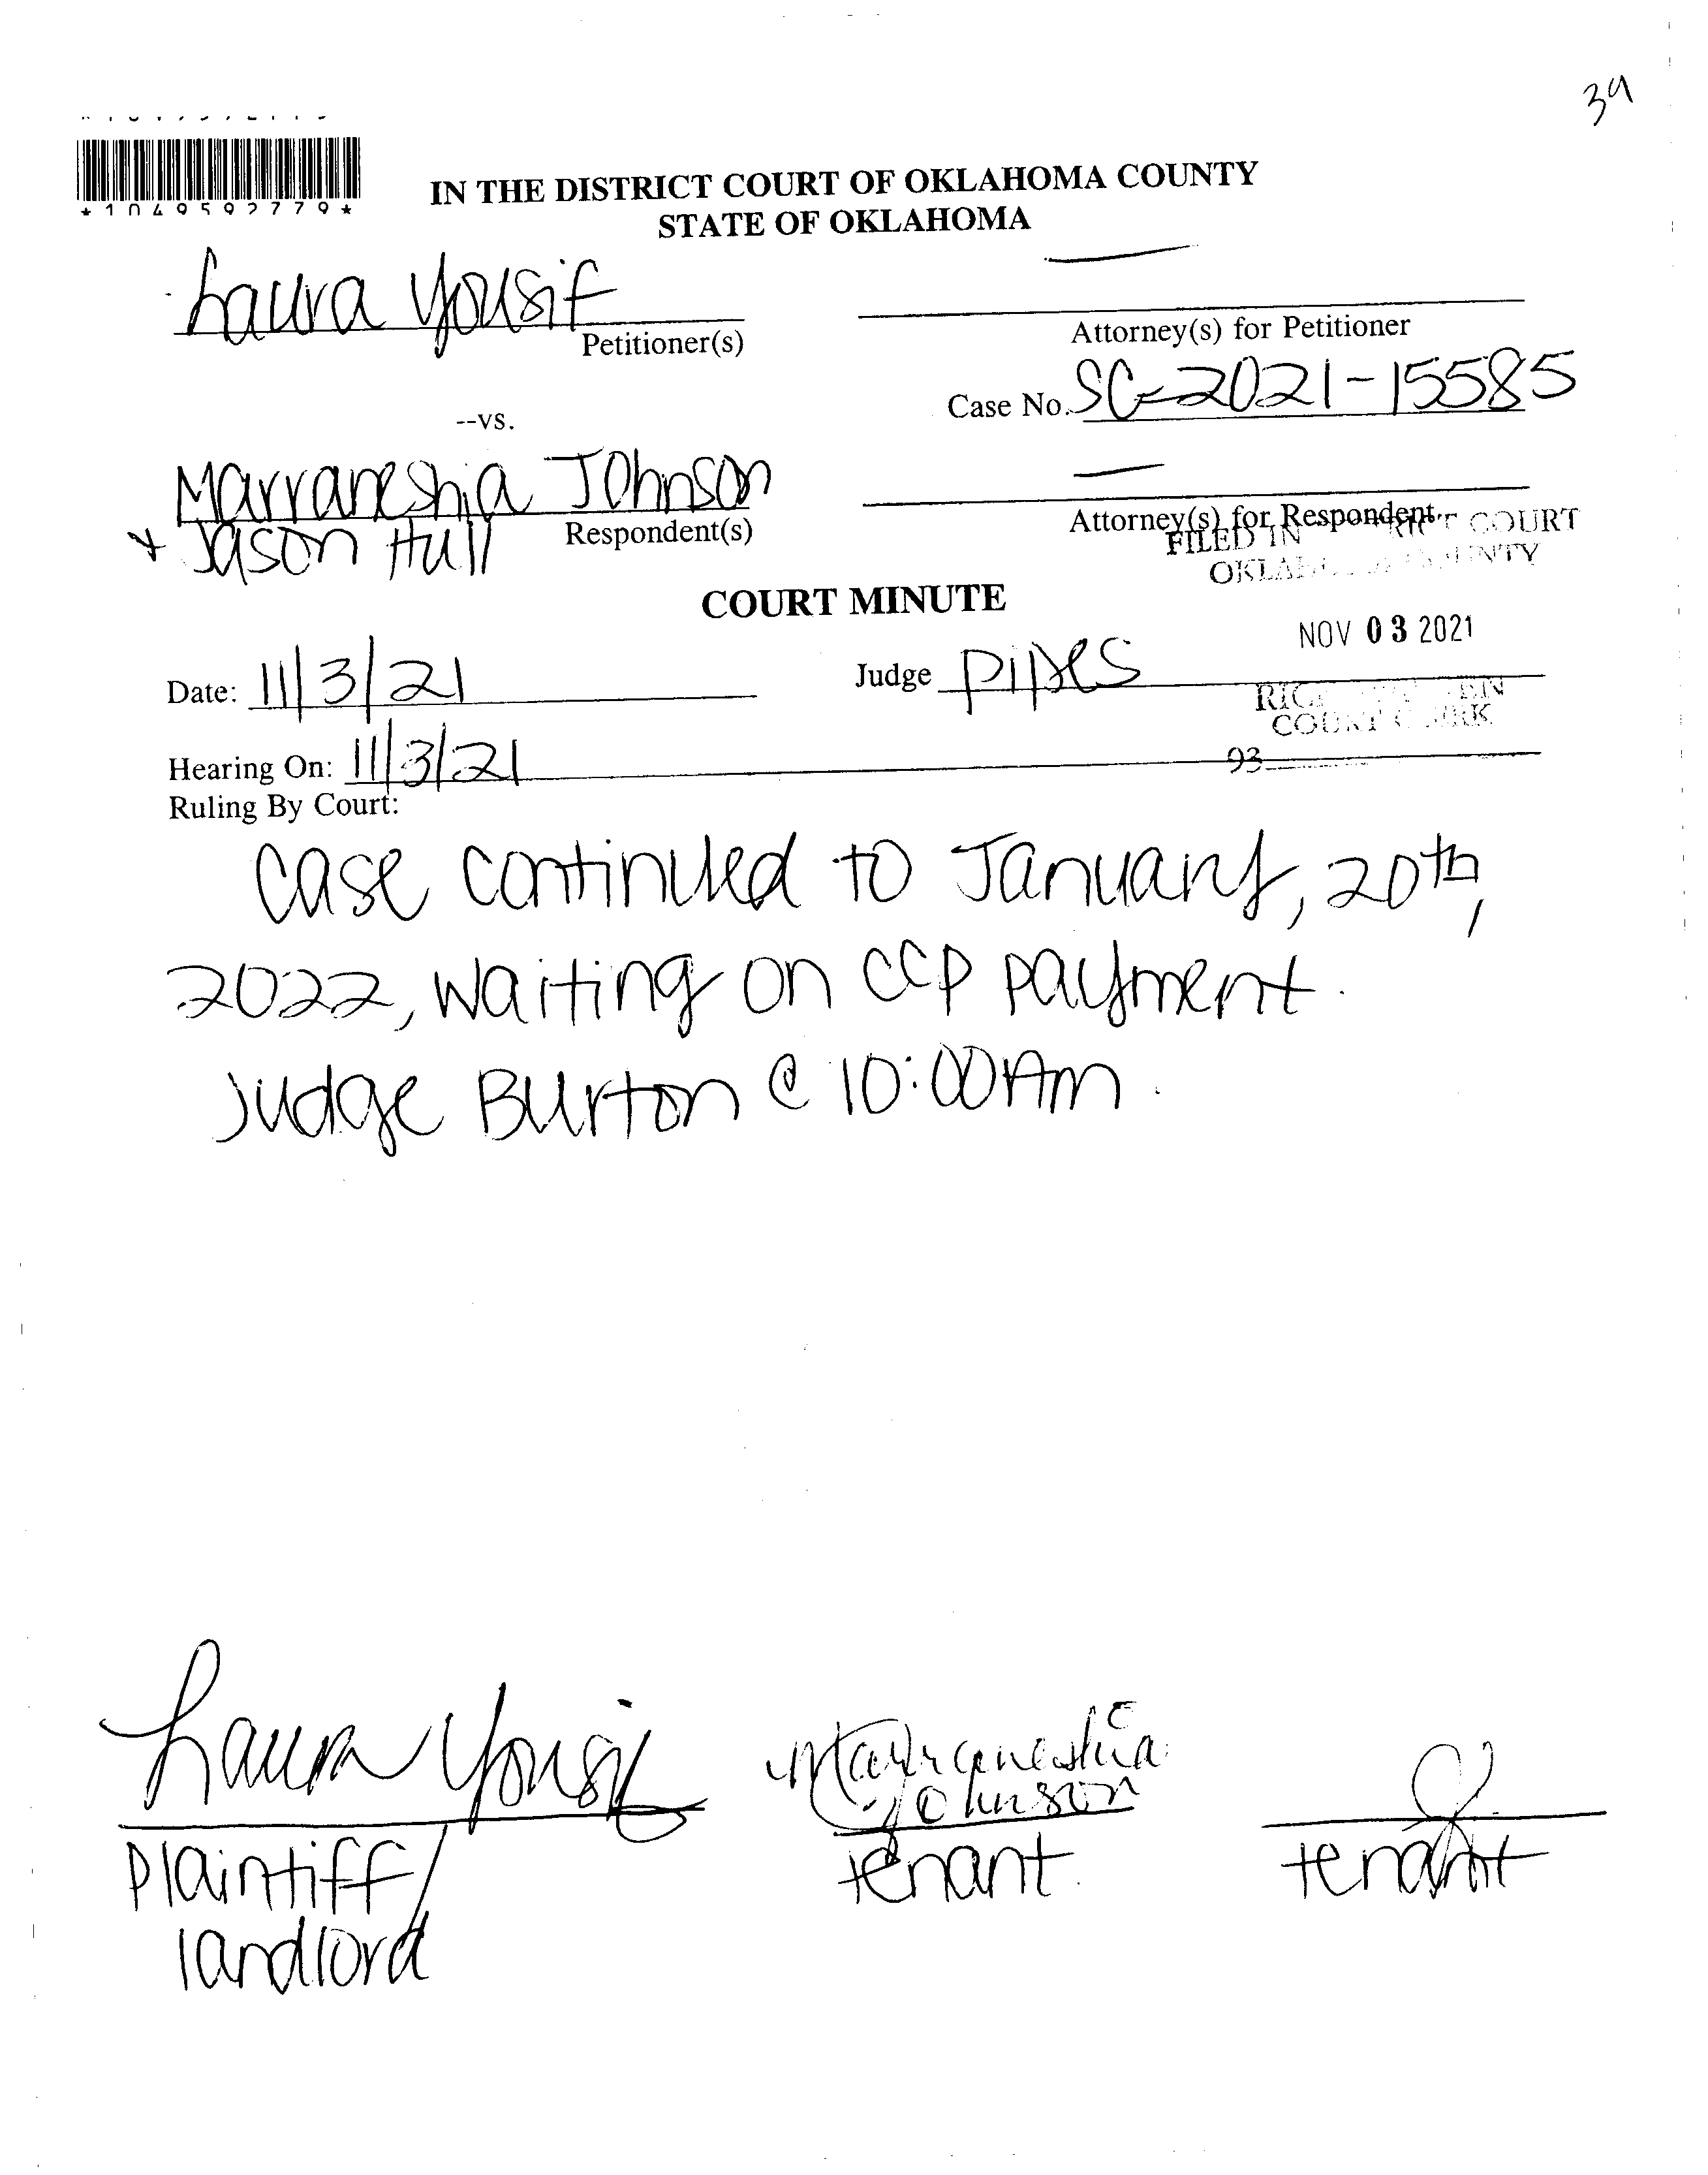 39
*1049592779*
IN THE DISTRICT COURT OF OKLAHOMA COUNTY
STATE OF OKLAHOMA
Laura Yousif
Petitioner(s)
Attorney(s) for Petitioner
Case No. SC-2021-15585
--vs.
Marraneshia Johnson
+ Jason Hull
Respondent(s)
Attorney(s) for Respondent
FILED IN COURT
COUNTY
COURT MINUTE
NOV 03 2021
Date: 11/3/21
Judge Pipes
COURT CLERK
Hearing On: 11/3/21
93
Ruling By Court:
Case continued to January, 20th,
2022, waiting on CCP payment.
Judge Burton @ 10:00 Am.
Laura Yousif
Marraneshia
Johnson
Plaintiff/
landlord
tenant
tenant